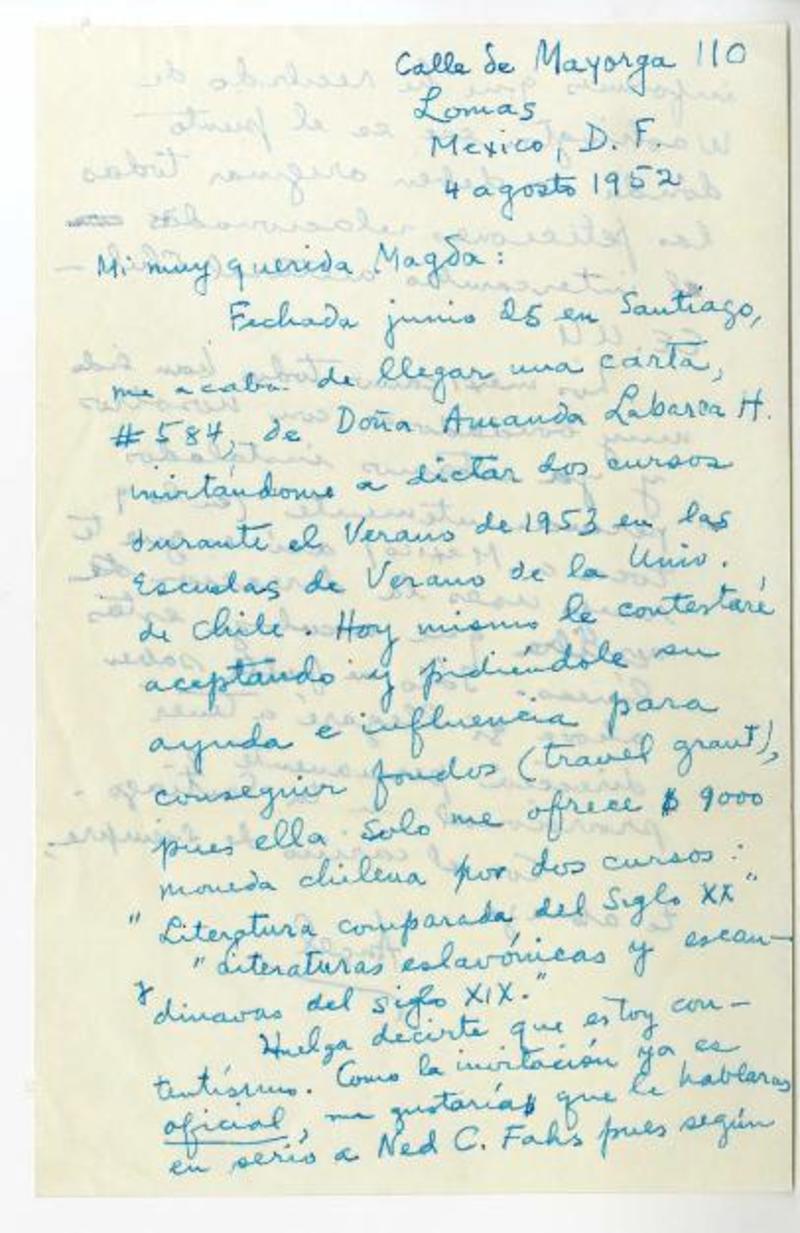 Calle de Mayorga 110
Lomas
Mexico, D. F.
4 agosto 1952
Mi muy querida Magda:
Fechada junio 25 en Santiago,
me acaba de llegar una carta,
#584, de Doña Amanda Labarca H.
invitándome a dictar dos cursos
durante el Verano de 1953 en las
Escuelas de Verano de la Univ.
de Chile. Hoy mismo le contestaré
aceptando y pidiéndole su
ayuda e influencia para
conseguir fondos (travel grant),
pues ella solo me ofrece $ 9000
moneda chilena por dos cursos:
"Literatura comparada del Siglo XX"
y "Literaturas eslavónicas y escan-
dinavas del siglo XIX."
Huelga decirte que estoy con-
tentísimo. Como la invitación ya es
oficial, me gustaría que le hablaras
en serio a Ned C. Fahs pues según